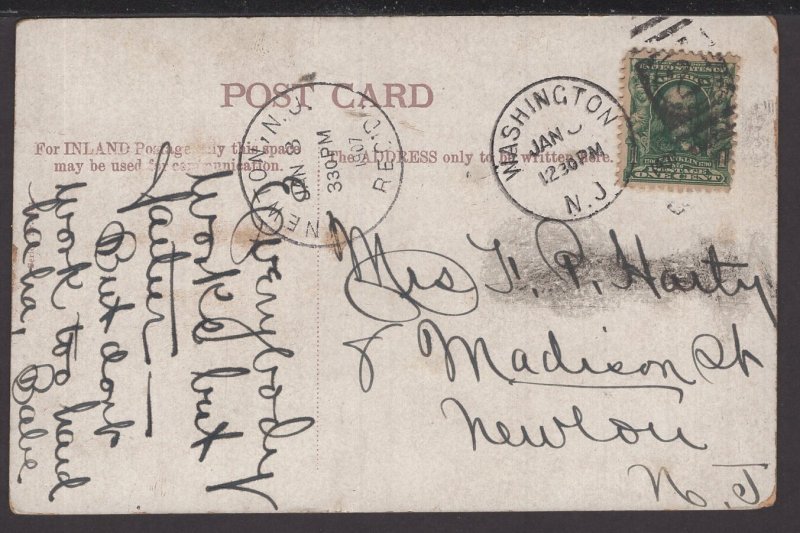 POST CARD
For INLAND Postage only this space
may be used for communication.
The ADDRESS only to be written here.
NEWTON, N.J.
JAN 8
330PM
1907
REC'D.
WASHINGTON
JAN
1230PM
N.J.
FRANKLIN
POSTAGE
1 ONE CENT 1
Everybody
works but
father —
But don't
work too hard
haha,
Babe
Mrs F. P. Harty
8 Madison St
Newton
N. J